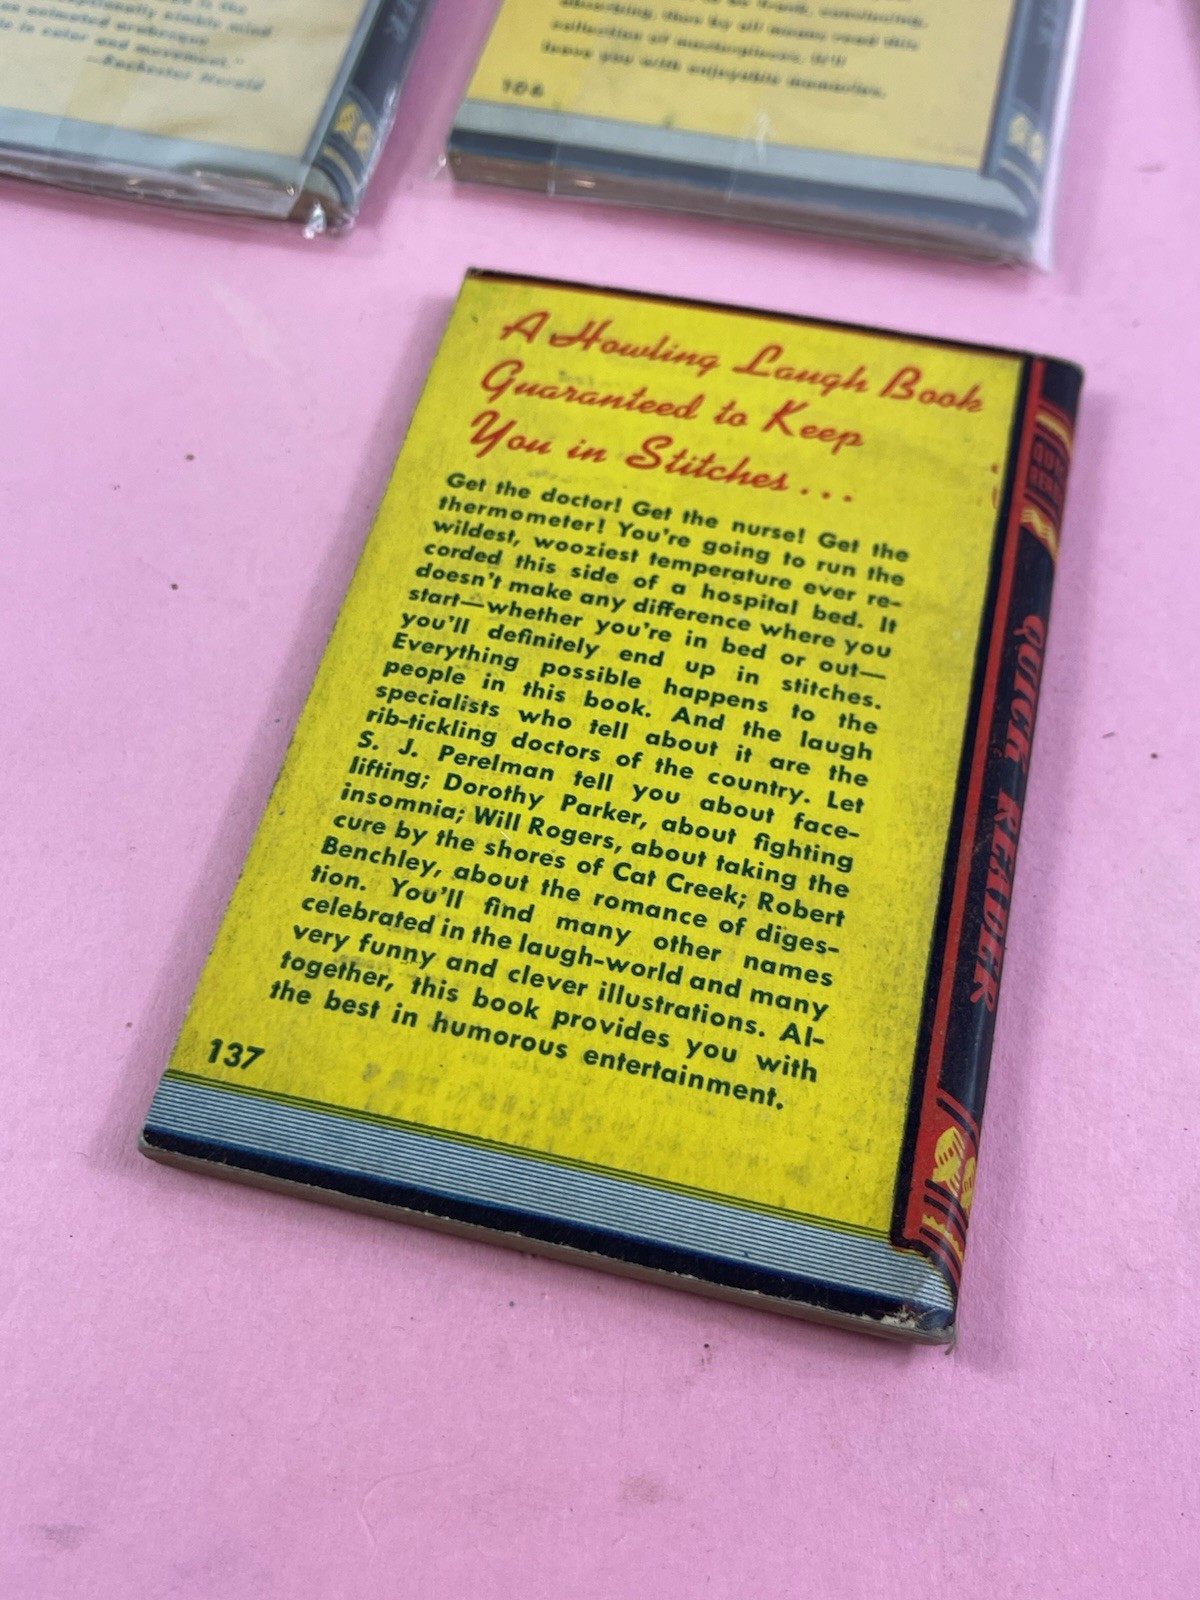 is the
exceptionally nimble mind
as animated arabesque
in color and movement."
—Rochester Herald
to be frank, convincing,
absorbing, then by all means read this
collection of masterpieces. It'll
leave you with enjoyable memories.
106
A Howling Laugh Book
Guaranteed to Keep
You in Stitches...
Get the doctor! Get the nurse! Get the
thermometer! You're going to run the
wildest, wooziest temperature ever re-
corded this side of a hospital bed. It
doesn't make any difference where you
start—whether you're in bed or out—
you'll definitely end up in stitches.
Everything possible happens to the
people in this book. And the laugh
specialists who tell about it are the
rib-tickling doctors of the country. Let
S. J. Perelman tell you about face-
lifting; Dorothy Parker, about fighting
insomnia; Will Rogers, about taking the
cure by the shores of Cat Creek; Robert
Benchley, about the romance of diges-
tion. You'll find many other names
celebrated in the laugh-world and many
very funny and clever illustrations. Al-
together, this book provides you with
the best in humorous entertainment.
137
QUICK READER